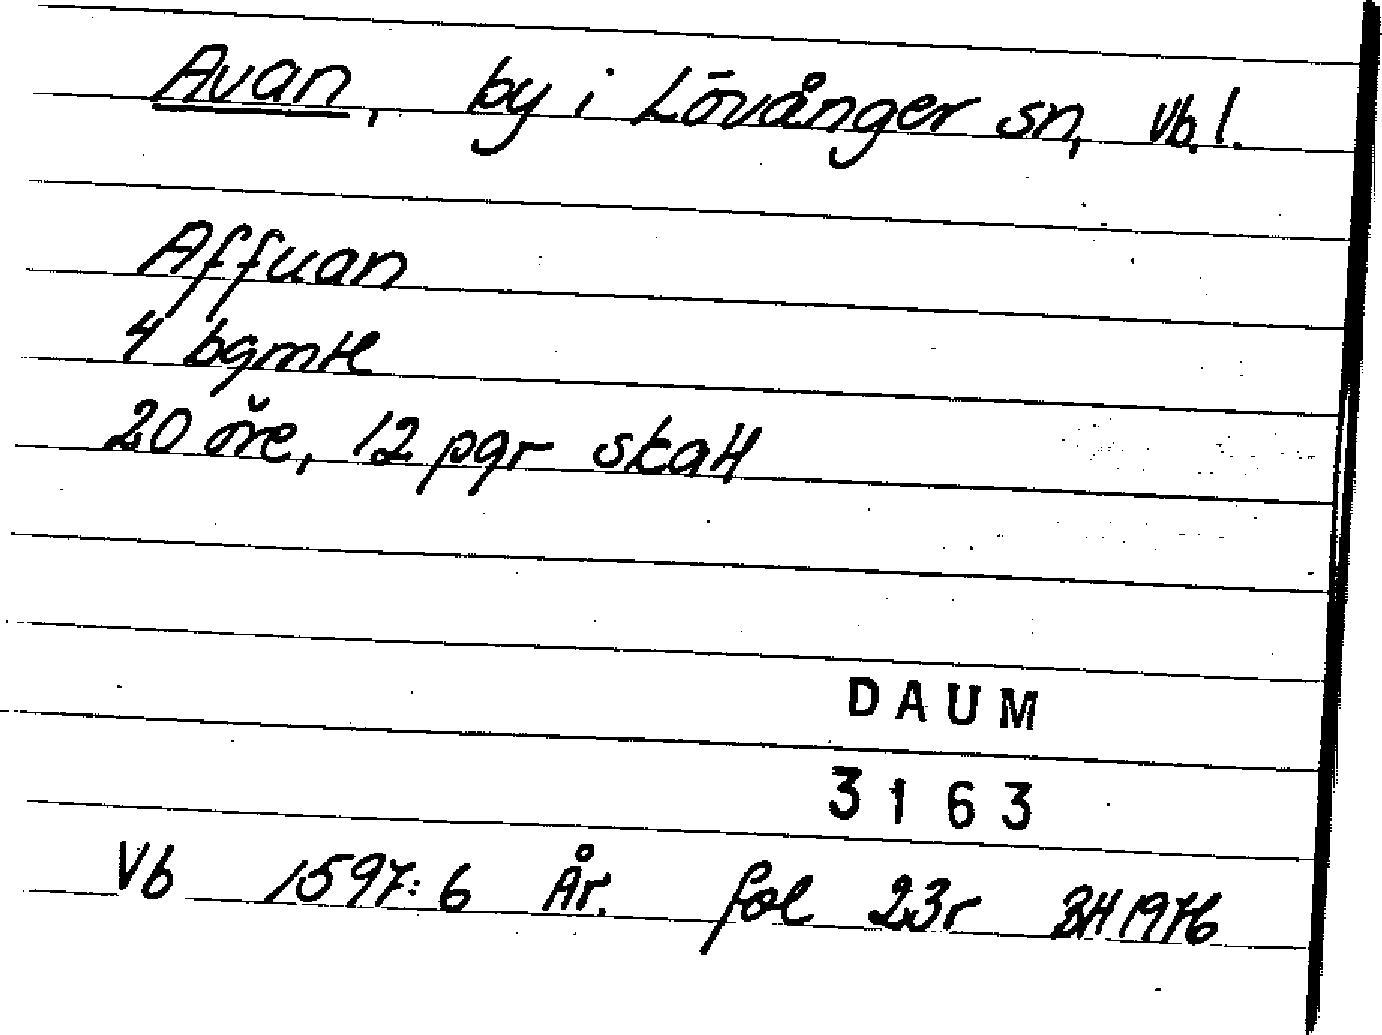 Avan, by i Lövånger sn, Vb. l.
Affuan
4 bgmtl
20 öre, 12 pgr skatt
DAUM
3163
Vb 1597:6 År. fol 23r BH 1976